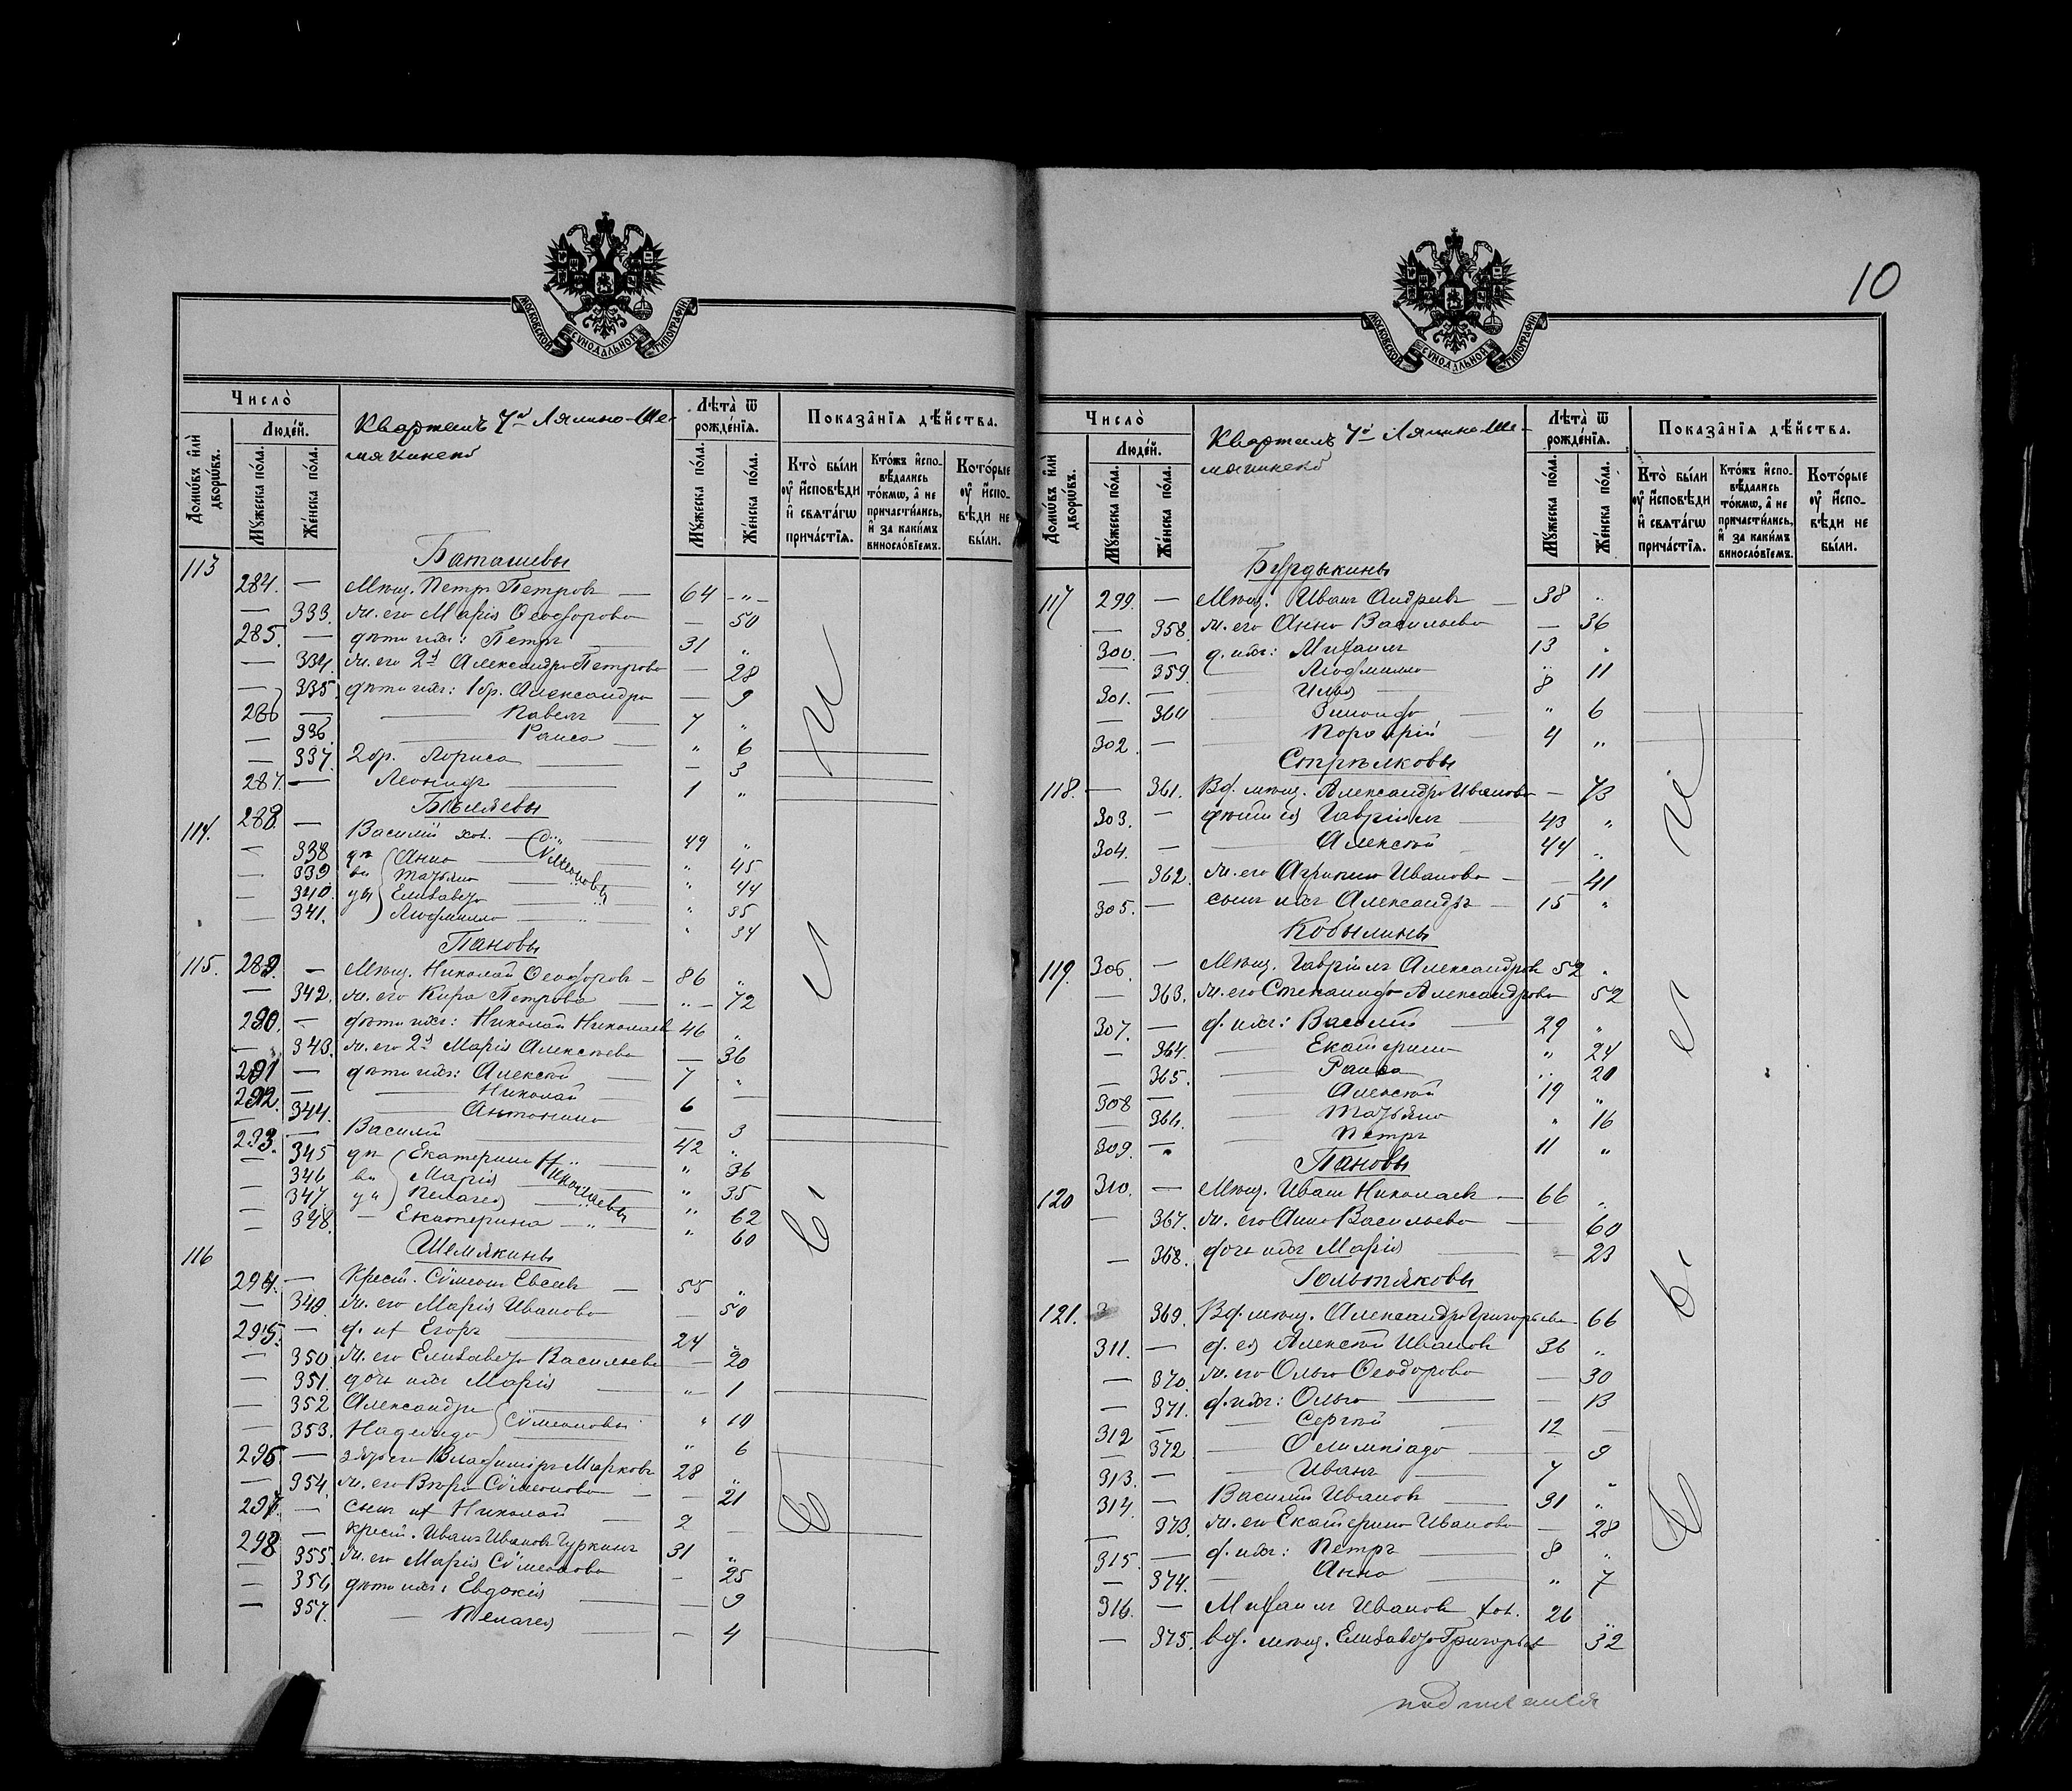 МОСКОВСКОЙ СѴНОДАЛЬНОЙ ТИПОГРАФІИ
Число̀
Домѡ́въ и҆лѝ дворѡ́въ.
Люде́й.
Мꙋ́жеска по́ла.
Же́нска по́ла.
Кварталъ 7й Лялино-Ше-
мякинскій
Лѣта̀ ѿ рожде́нїѧ.
Мꙋ́жеска по́ла.
Же́нска по́ла.
Показа̑нїѧ дѣ́йства.
Кто̀ бы́ли ᲂу҆ и҆сповѣ́ди и҆ свѧта́гѡ прича́стїѧ.
Кто́жъ и҆спо-вѣ́дались то́кмѡ, а҆ не причасти́лись, и҆ за каки́мъ винослові́емъ.
Кото́рые ᲂу҆ и҆спо-вѣ́ди не бы́ли.
113 Баташевы
284. — Мѣщ. Петръ Петровъ — 64 - " -
— 333. ж. его Марія Ѳеодорова — 50
285. — дѣти ихъ: Петръ 31 "
— 334. ж. его 2я Александра Петрова — 28
— 335. дѣти ихъ: 1 бр. Александра — 9
286 — Павелъ 7 "
— 336. Раиса " 6
— 337. 2 бр. Лариса — 3
287. — Леонидъ 1 "
Бѣляевы
114. 288. — Василій хол. 49 "
— 338 дѣ Анна Сѵмеоновы " 45
— 339 ви Татьяна " 44
— 340. цы Елизавета " 35
— 341. Людмилла " 34
Пановы
115. 289. — Мѣщ. Николай Ѳеодоровъ — 86 "
— 342. ж. его Кира Петрова " — 72
290. — дѣти ихъ: Николай Николаевъ 46 "
— 343. ж. его 2я Марія Алексѣева — 36
291 — дѣти ихъ: Алексѣй 7 "
292. — Николай 6 —
— 344. Антонина — 3
293. — Василій 42 "
— 345 дѣ Екатерина Николаевы " 36
— 346 ви Марія " 35
— 347. цы Пелагея " 62
— 348. — Екатерина " 60
116 Шемякины
294. — Крест. Сѵмеонъ Евсеевъ — 55 "
— 349. ж. его Марія Иванова — 50
295. — д. их Егоръ 24 "
— 350 ж. его Елизавета Васильева — 20
— 351. дочь ихъ Марія " 1
— 352 Александра Сѵмеоновы " 10
— 353. Надежда " 6
296. — зять его Владиміръ Марковъ 28 "
— 354. ж. его Вѣра Сѵмеонова — 21
297. — сынъ их Николай 2
298 — крест. Иванъ Ивановъ Чуркинъ 31 "
— 355. ж. его Марія Сѵмеонова — 25
— 356 дѣти ихъ: Евдокія — 9
— 357. — Пелагея — 4
10
МОСКОВСКОЙ СѴНОДАЛЬНОЙ ТИПОГРАФІИ
Число̀
Домѡ́въ и҆лѝ дворѡ́въ.
Люде́й.
Мꙋ́жеска по́ла.
Же́нска по́ла.
Кварталъ 7й Лялино-Ше-
мякинскій
Лѣта̀ ѿ рожде́нїѧ.
Мꙋ́жеска по́ла.
Же́нска по́ла.
Показа̑нїѧ дѣ́йства.
Кто̀ бы́ли ᲂу҆ и҆сповѣ́ди и҆ свѧта́гѡ прича́стїѧ.
Кто́жъ и҆спо-вѣ́дались то́кмѡ, а҆ не причасти́лись, и҆ за каки́мъ винослові́емъ.
Кото́рые ᲂу҆ и҆спо-вѣ́ди не бы́ли.
Бурдыкины
117 299. — Мѣщ. Иванъ Андреевъ — 38 "
— 358. ж. его Анна Васильева — 36
300. — д. ихъ: Михаилъ 13 "
— 359. Людмилла " 11
301. — Илья 8
— 360 Зинаида " 6
302. — Порфирій 4 "
Стрѣлковы
118. — 361. Вд. мѣщ. Александра Иванова — 73
303. — дѣти ея Гавріилъ 43 "
304. — Алексѣй 44 "
— 362. ж. его Агрипина Иванова — 41
305. — сынъ ихъ Александръ — 15 "
Кобылины
119. 306. — Мѣщ. Гавріилъ Александровъ 52 "
— 363. ж. его Степанида Александрова 52
307. — д. ихъ: Василій 29 "
— 364. Екатерина " 24
— 365. Раиса " 20
308 — Алексѣй 19 "
— 366. Татьяна " 16
309. — Петръ 11 "
Пановы
120 310. — Мѣщ. Иванъ Николаевъ — 66 "
— 367. ж. его Анна Васильева — 60
— 368. дочь ихъ Марія — 23
Гольтяковы
121. 369. Вд. мѣщ. Александра Григорьева 66
311. — д. ея Алексѣй Ивановъ 36 "
— 370. ж. его Ольга Ѳеодорова — 30
— 371. д. ихъ: Ольга — 13
312 — Сергѣй 12 —
372 — Олимпіада — 9
313. — Иванъ 7 "
314. — Василій Ивановъ 31 "
— 373. ж. его Екатерина Иванова — 28
315. — д. ихъ: Петръ 8 "
— 374. Анна " 7
316. — Михаилъ Ивановъ хол. 26
— 375. вд. мѣщ. Елизавета Григорьев " 32